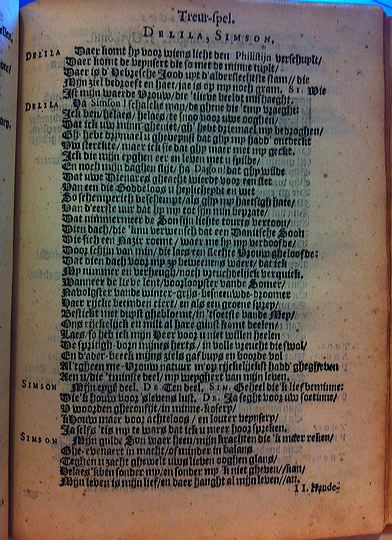 Treur-spel.
DELILA, SIMSON.
DELILA Daer komt hy voor wiens licht den Philistijn verschuylt/
Daer komt de veynsert die so met de minne tuylt/
Daer is d'Hebreesche Jood uyt d'alderfleetste stam/ die
Mijn ziel bedroeft en haet/ jae is op my noch gram, SI. Wie
Ist mijn waerde Vrouw/ die 'tlieve liefde mishaeght.
DELILA Ha Simson! schalcke man/ de ghene die 'tmy vraeght
Ick ben/ helaes/ helaes/ te snoo voor uwe ooghen/
Dat ick uw min ghehiet/ gh' hebt driemael my bedroghen/
Gh' hebt drymael u gheveynst dat ghy my had' ontdeckt
Uw sterckte/ maer ick sie dat ghy maer met my geckt.
Ick die mijn eyghen eer en leven met u spilde/
En noch mijn daghen slijt/ ha Dagon! dat ghy wilde
Dat uwe Dienares gheacht wierde voor een slet
Van een die Goddeloos u heylicheydt en wet
So schemperich beschempt/ als ghy my haestigh hate/
Van d'eerste uur dat hy my tot sijn min bepzate/
Dat nimmermeer de Son sijn lichte toorts vertoon/
Dien dach/ die 'k uw verwensch dat een Danitsche Soon
Die sich een Nazir romt/ waer me hy my verdoofde/
Voor schijn van min/ die laes een slechte Vrouw gheloofde:
Dat dien dach voor my zy beweenens waert/ dat ick
My nummer en verheugh/ noch vreuchdelijck verquick.
Wanneer de lieve lent/ voorlooyster vande Somer/
Navolgster vande winter-grijs-besneeuwde-droomer
Haer rijcke beemden ciert/ en als een groene sprey/
Bestickt met duyst ghebloemt/ in 'tsoetste vande Mey/
Ons rijckelijck en milt al hare gunst komt deelen/
Laes/ so heb ick mijn Heer voor u niet willen heelen
De springh-born mijnes herts/ in volle vreucht die swol/
En d'ader-beeck mijns ziels gaf buys en boorde vol
Al 'tgheen me-Vrouw natuur m' op rijckelijckst hadd' ghegeven
Aen u/ die 'tminste deel/ my weyghert van mijn leven.
SIMSON Mijn eygē deel. DE. Een deel, SIM. Geheel die 'k lief beminne:
Die 'k houw voor 'slevens lust. DE. Ja seght voor uw soetinne/
U woorden gheconfijt/ in minne-kosery/
'k Houw maer voor achteloos/ en louter veynsery/
Ja self 's 'tis my te waes dat ick u meer hoor spreken.
SIMSON Mijn gulde Son waer heen/ mijn krachten die 'k m'eer reken/
Ghe-evenaert in macht/ of minder in balans
Teghen u zacht ghewelt uws lieven ooghen glans/
Helaes 'k ben sonder my/ en sonder my 'k niet gheven/ /kan/
Mijn leven is mijn lief/ en daer hanght al mijn leven/ /an.
II. Hande-